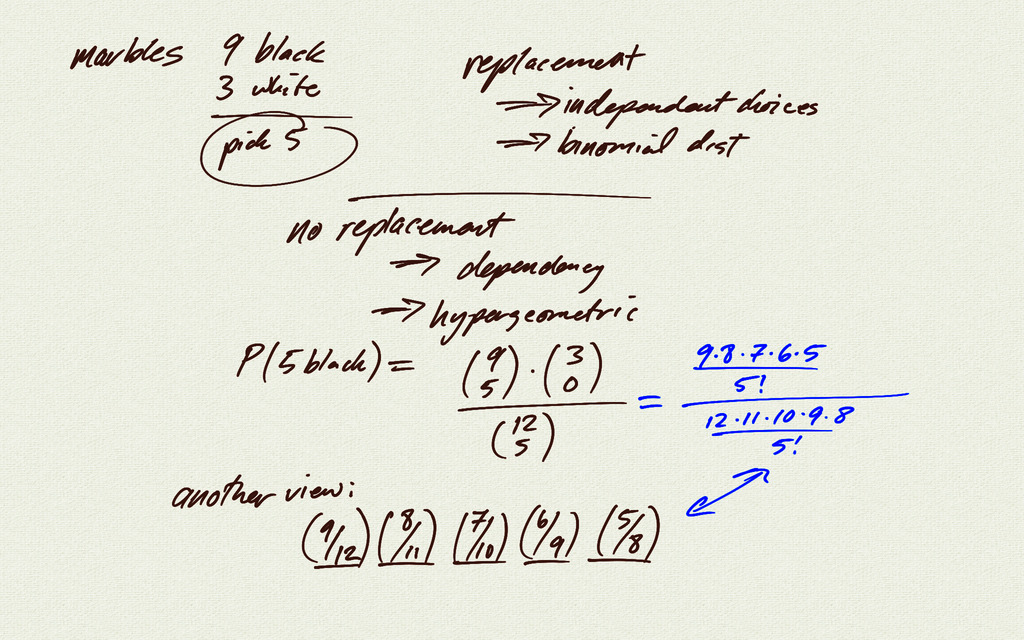 marbles 9 black
3 white
pick 5
replacement
⇒ independent choices
⇒ binomial dist
no replacement
⇒ dependency
⇒ hypergeometric
P(5 black) = (9 5) · (3 0) / (12 5) = 9·8·7·6·5 / 5! / 12·11·10·9·8 / 5!
another view:
(9/12) (8/11) (7/10) (6/9) (5/8)